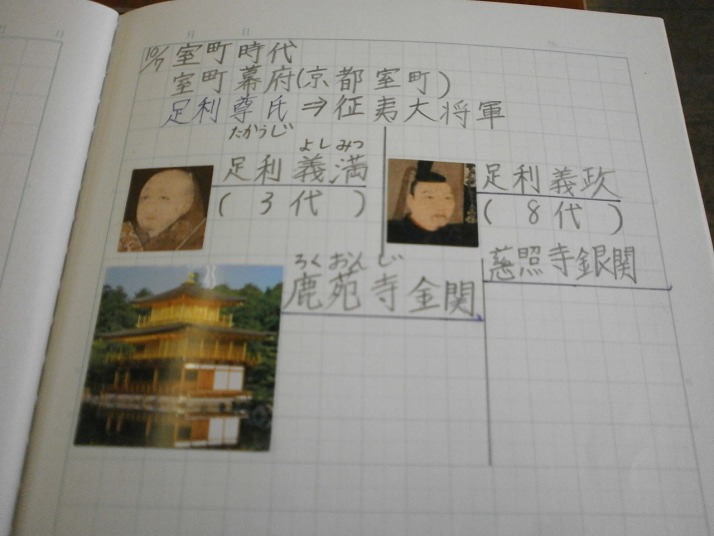 10/7 室町時代
室町幕府(京都室町)
足利尊氏⇒征夷大将軍
たかうじ
よしみつ
足利義満
(3代)
足利義政
(8代)
ろくおんじ
鹿苑寺金関
慈照寺銀関